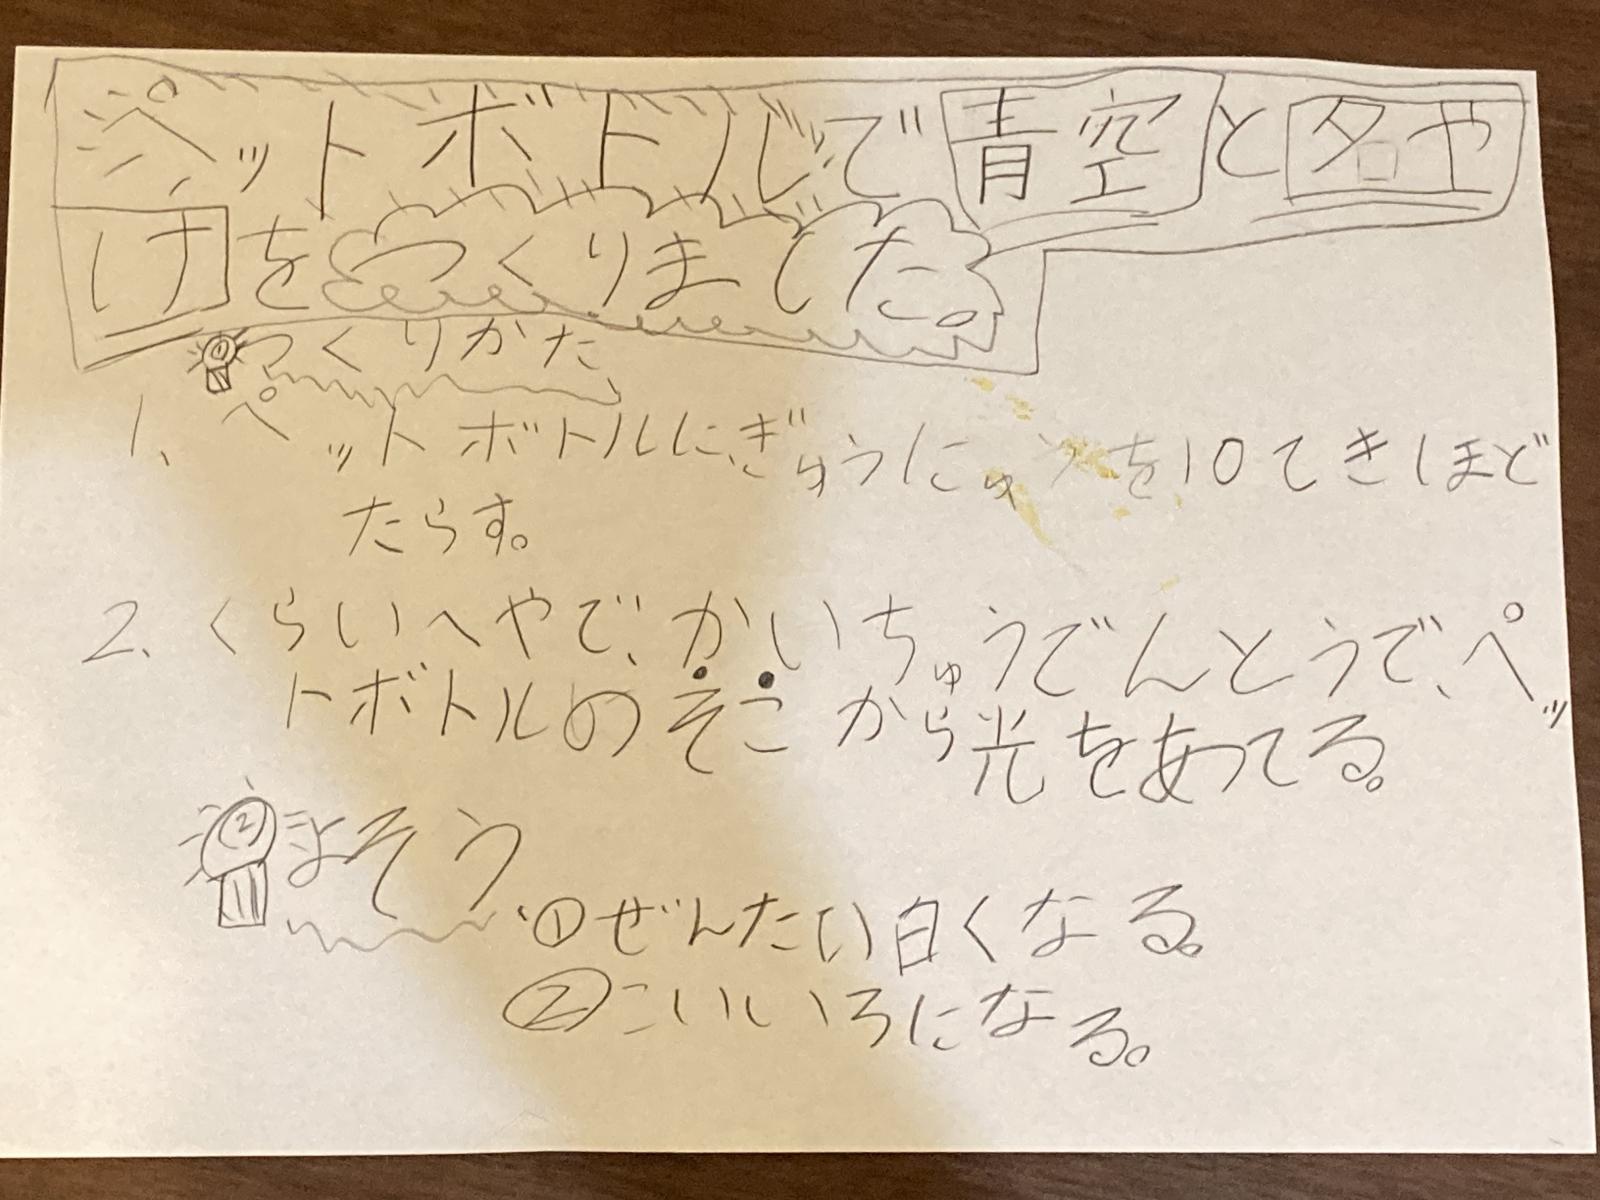 ペットボトルで青空と夕や
けをつくりました。
①つくりかた
1、ペットボトルにぎゅうにゅうを10てきほど
たらす。
2、くらいへやで、かいちゅうでんとうで、ペッ
トボトルのそこから光をあてる。
②よそう
①ぜんたい白くなる。
②こいいろになる。